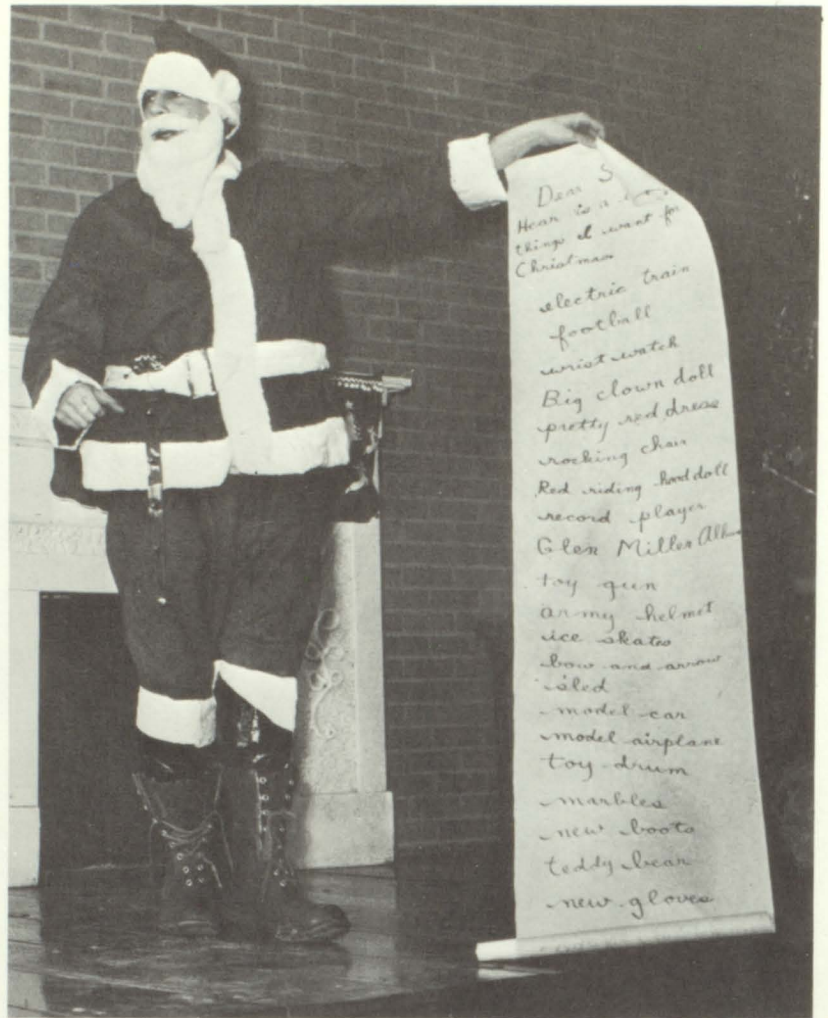 Dear S
Hear is a
things I want for
Christmas
electric train
football
wrist watch
Big clown doll
pretty red dress
rocking chair
Red riding hood doll
record player
Glen Miller Album
toy gun
army helmet
ice skates
bow and arrow
sled
model car
model airplane
toy drum
marbles
new boots
teddy bear
new gloves